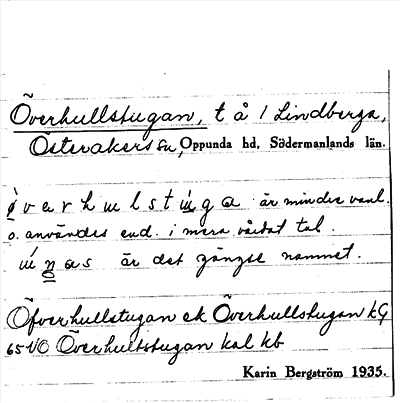 Överhullstugan, t å 1 Lindberga,
Österåkers sn, Oppunda hd, Södermanlands län.
är mindre vanl.
o. användes end. i mera vårdat tal.
är det gängse namnet.
Öfverhullstugan ek Överhullstugan kG
65 VÖ Överhultstugan kal kb
Karin Bergström 1935.